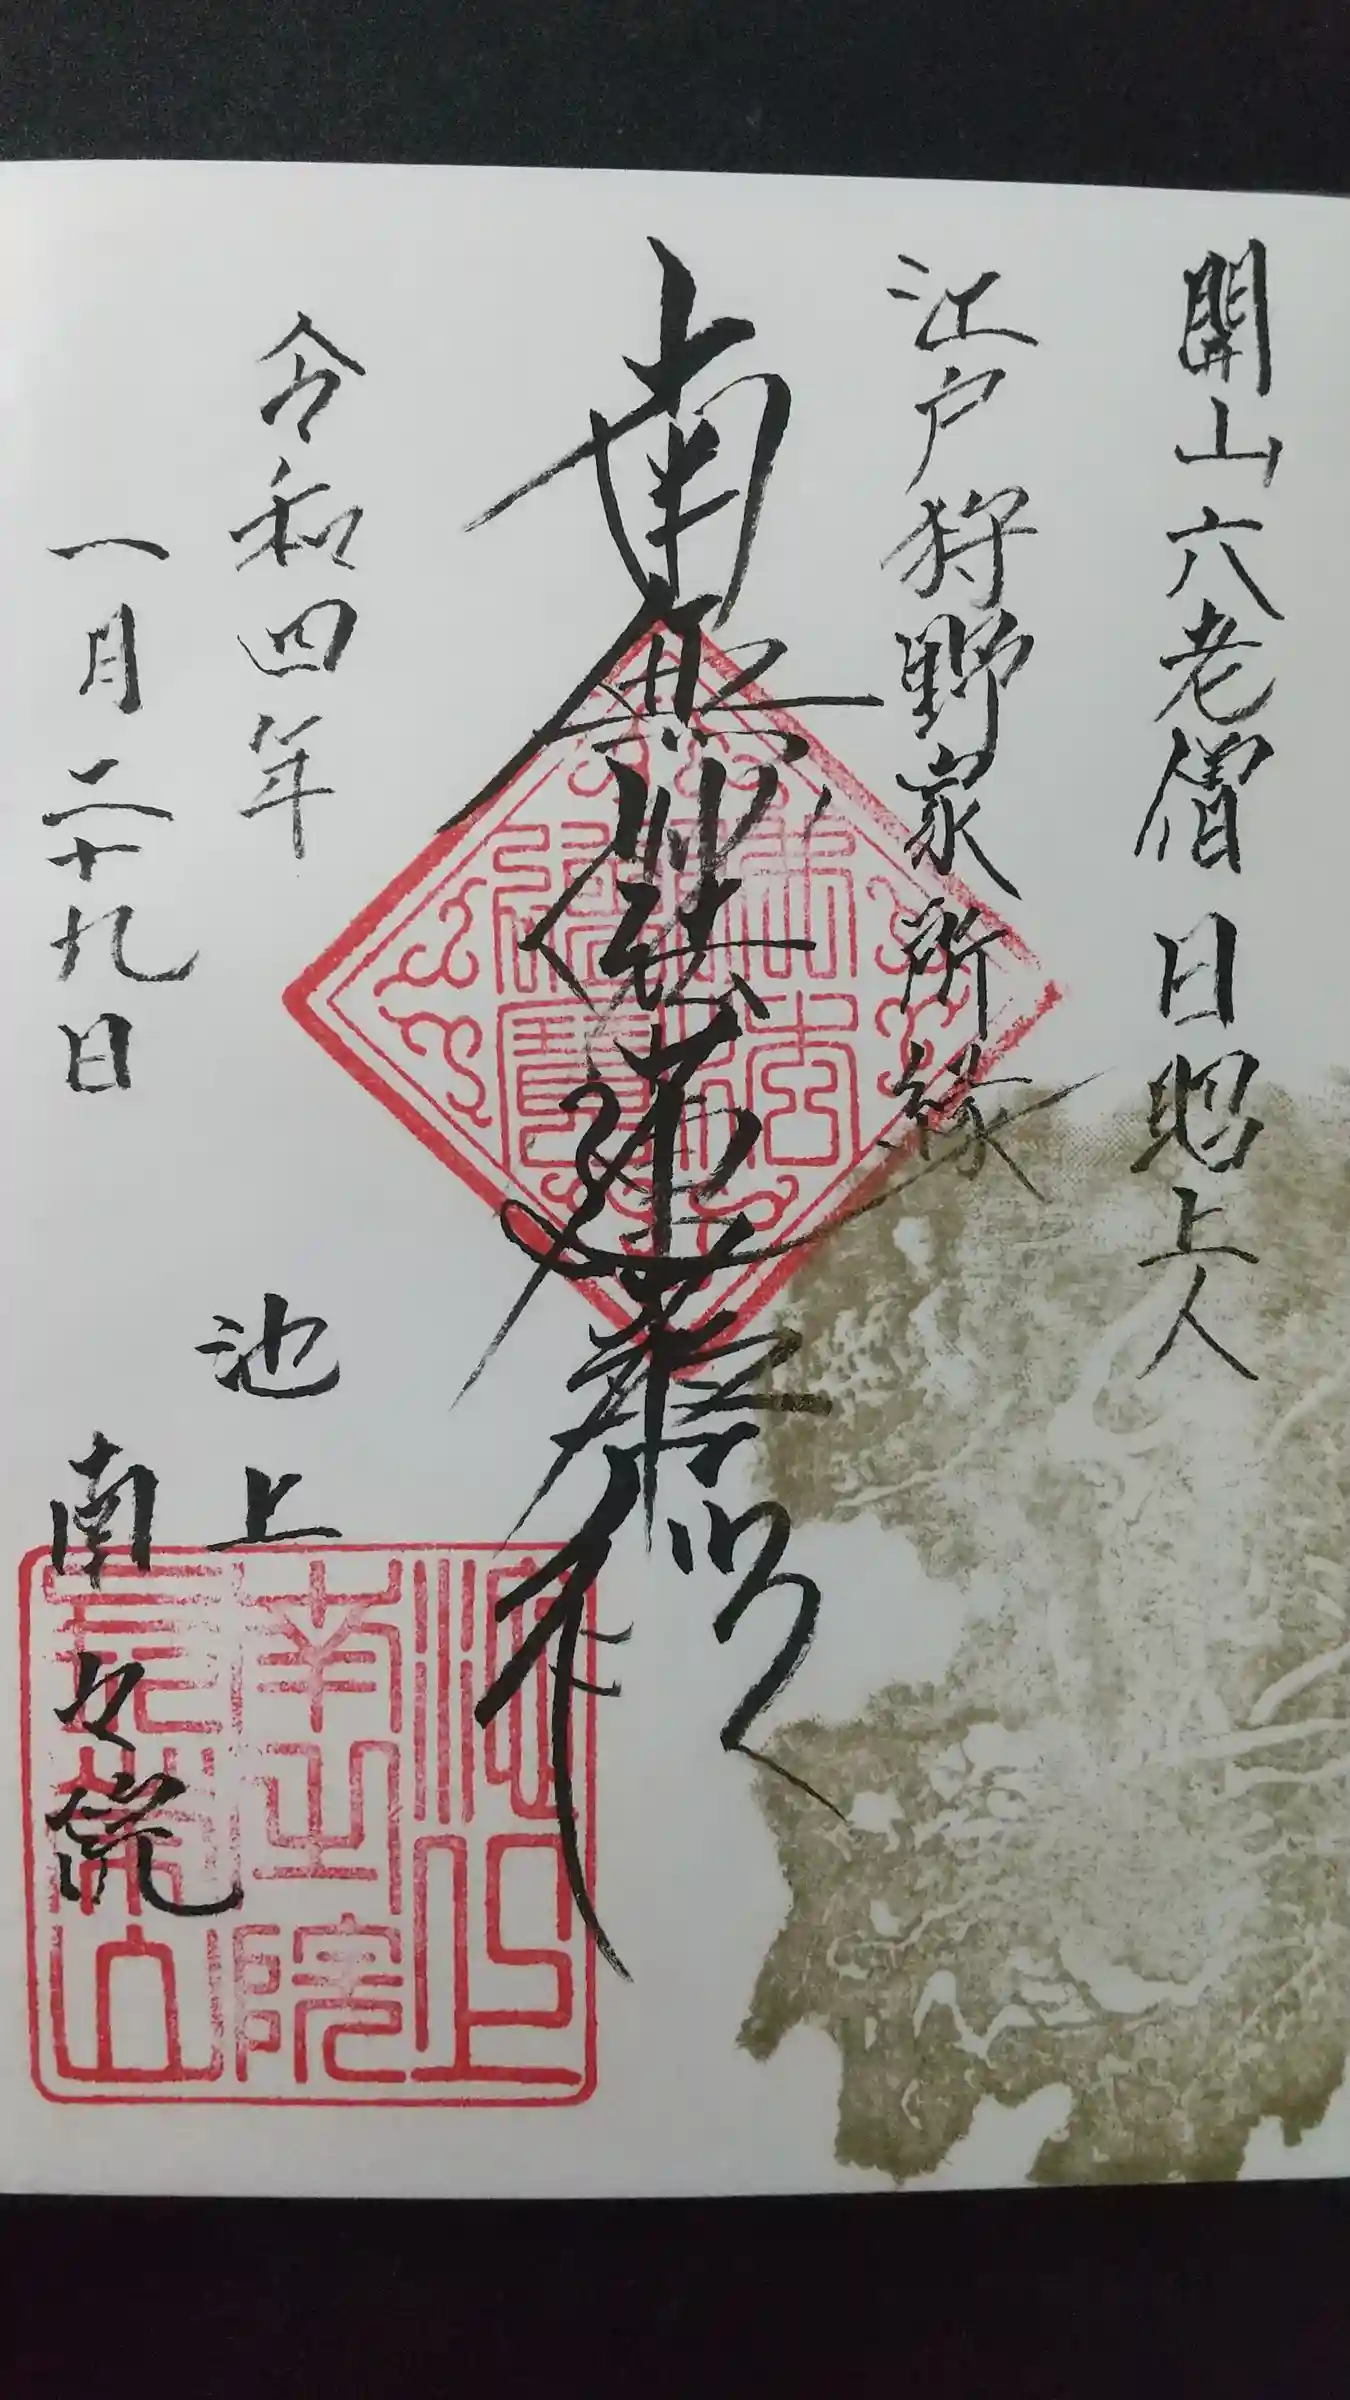 開山六老僧 日昭上人
江戸狩野家所縁
南無妙法蓮華経
令和四年
一月二十九日
池上
南之院
池上
南之院